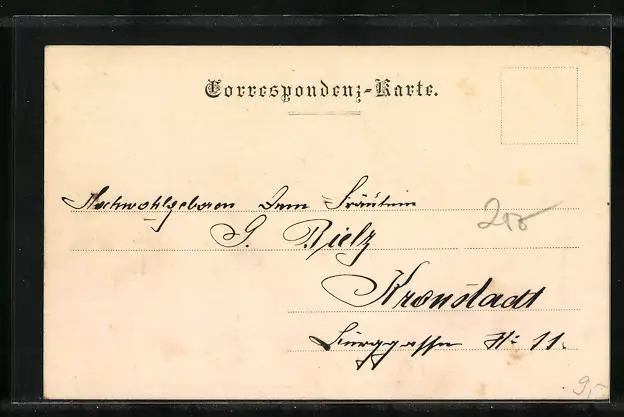 Correspondenz-Karte.
Hochwohlgeboren Dem Fräulein
G. Bielz
Kronstadt
Burggasse No 11.
9,-